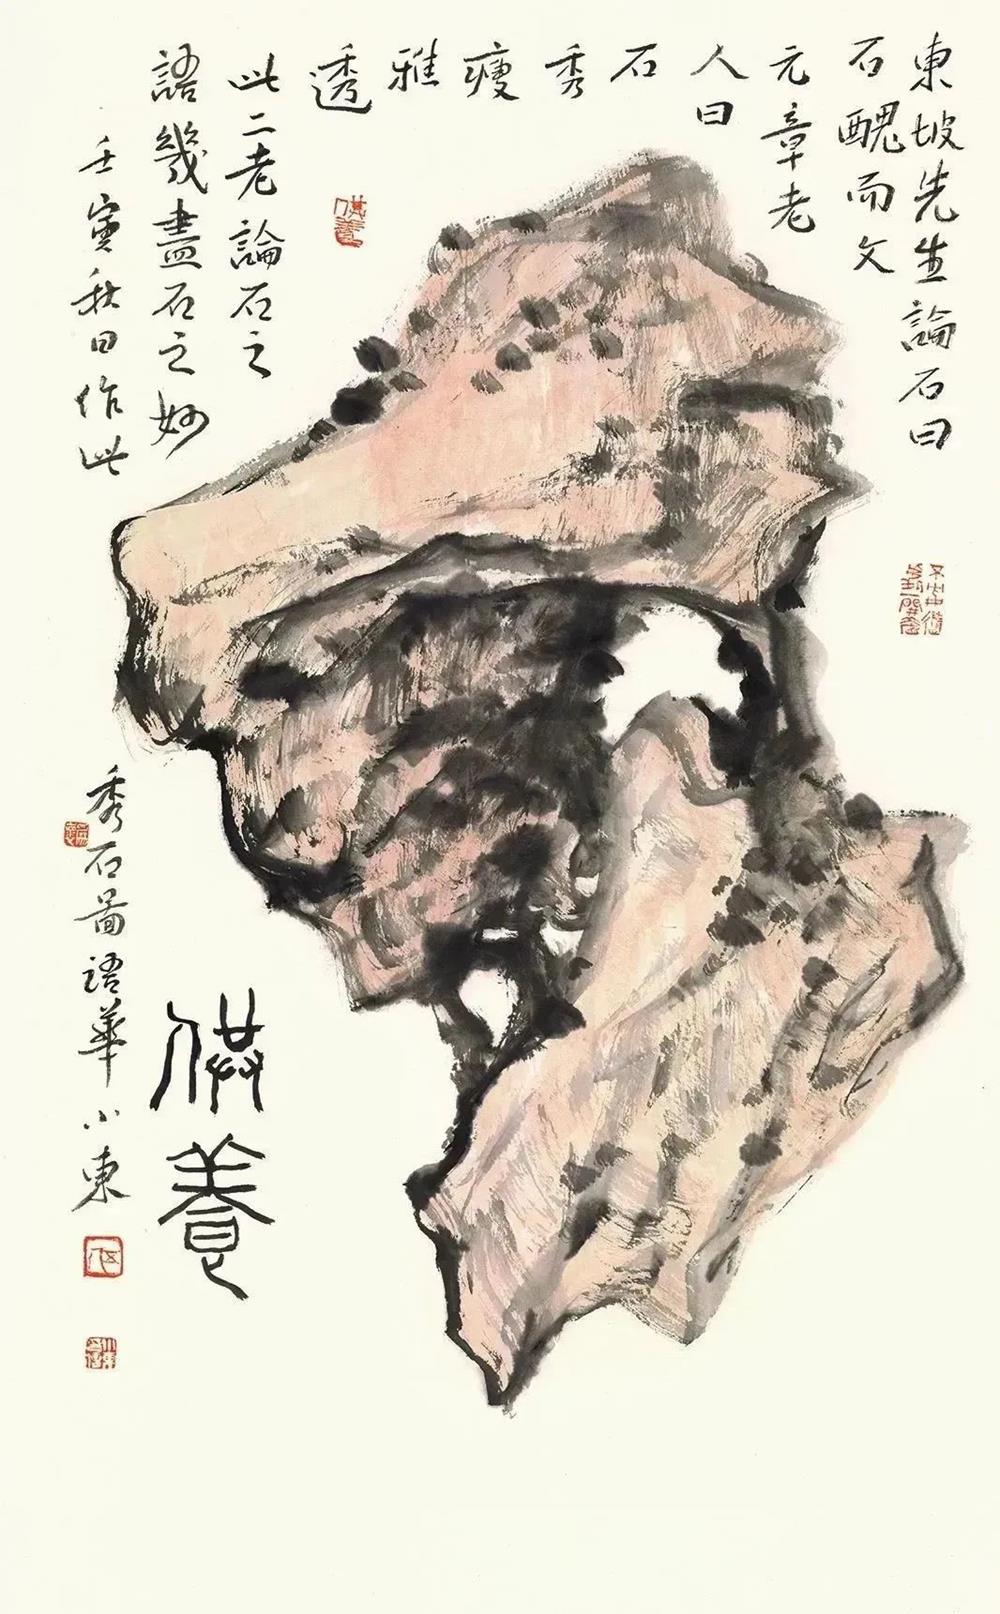 東坡先生論石曰
石醜而文
元章老
人曰
石
秀
瘦
雅
透
此二老論石之
語幾盡石之妙
壬寅秋日作此
秀石圖語華小東
供養
供養